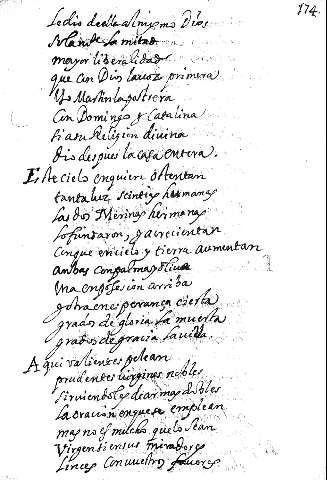 174.
le dio de ella al mismo Dios
solam.te la mitad
mayor liberalidad
que con Dios la voz primera
Vso Martin la postrera
Con Domingo y Catalina
si a su Religion divina
dio despues la casa entera.
Este cielo en quien ostentan
tanta luz hermanas
las dos Merinas hermanas
lo fundaron, y acrecientan
Conque en cielo y tierra aumentan
anbas con palma y oliva
Vna en posesion arriba
y otra en esperança cierta
grados de gloria la muerta
grados de gracia la viva.
Aqui valientes pelean
prudentes virgines nobles
sirviendoles de armas dobles
la oracion en que se emplean
mas no es mucho que lo sean
Virgen si en sus miradores
linces con vuestros favores